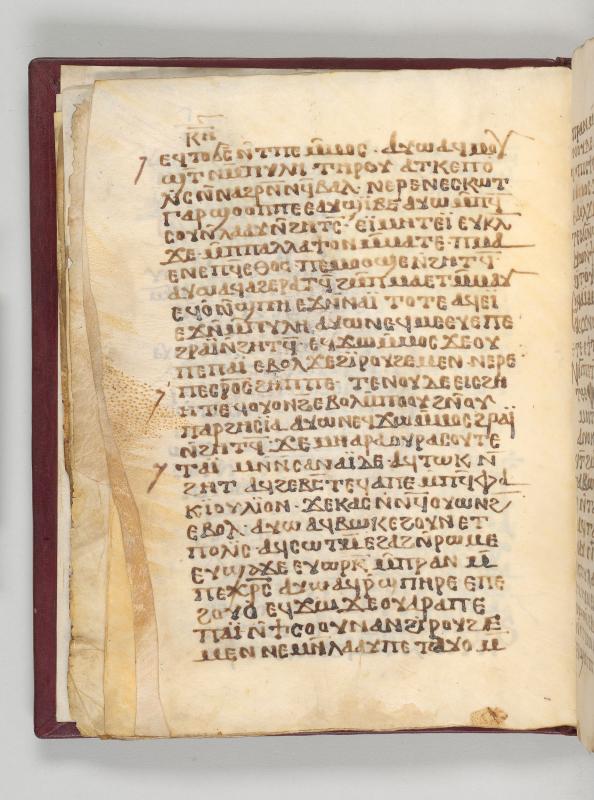 ⲕⲏ
ⲉϥⲧⲟϭⲥ ⲛ̄ⲧⲡⲉ ⲙ̄ⲙⲟⲥ · ⲁⲩⲱ ⲁϥⲙⲟⲩ
ϣⲧ ⲛⲙ̄ⲡⲩⲗⲏ ⲧⲏⲣⲟⲩ ⲁⲧⲕⲉⲡⲟ
ⲛ̄ⲛⲁϩⲣⲛⲛϥ̄ⲃⲁⲗ · ⲛⲉⲣⲉⲛⲉⲥⲕⲱⲧ
ⲅⲁⲣ ϣⲟⲟⲡⲡⲉ ⲉⲁⲩϣⲓⲃⲉ ⲁⲩⲱ ⲙ̄ⲡϥ̄
ⲥⲟⲩⲛ̄ⲗⲁⲁⲩ ⲛ̄ϩⲏⲧⲥ̄ · ⲉⲓ̈ⲙⲏⲧⲉⲓ̈ ⲉⲩⲕⲗ
ϫⲉ · ⲙ̄ⲡⲡⲁⲗⲗⲁⲧⲟⲛ ⲙ̄ⲙⲁⲧⲉ · ⲡⲙⲁ
ⲉⲛⲉⲡϥⲉⲑⲟⲥ ⲡⲉ ⲙⲟⲟϣⲉ ⲛ̄ϩⲏⲧϥ̄
ⲁⲩⲱ ⲁϥⲁϩⲉⲣⲁⲧϥ̄ ϩⲙ̄ⲡⲙⲁ ⲉⲧⲙ̄ⲙⲁⲩ
ⲉϥⲟ ⲉϫⲛ̄ⲛⲁⲓ̈ ⲧⲟⲧⲉ ⲁϥⲉⲓ
ⲉϫⲛ̄ⲙ̄ⲡⲩⲗⲏ ⲁⲩⲱ ⲛⲉϥⲙⲉⲉⲩⲉ ⲡⲉ
ϩⲣⲁⲓ̈ ⲛ̄ϩⲏⲧϥ̄ ⲉϥϫⲱ ⲙ̄ⲙⲟⲥ ϫⲉ ⲟⲩ
ⲡⲉ ⲡⲁⲓ̈ ⲉⲃⲟⲗ ϫⲉ ϩⲓ̈ⲣⲟⲩϩⲉ ⲙⲉⲛ · ⲛⲉⲣⲉ
ⲡⲉⲥⲣⲟⲥ ϩⲏⲡ ⲡⲉ · ⲧⲉⲛⲟⲩ ⲇⲉ ⲉⲓⲥϩⲏ
ⲏⲧⲉ ϥⲟⲩⲟⲛϩ ⲉⲃⲟⲗ ⲙ̄ⲡⲟⲟⲩ ϩⲛ̄ⲟⲩ
ⲡⲁⲣϩⲏⲥⲓ̈ⲁ ⲁⲩⲱ ⲛⲉϥϫⲱ ⲙ̄ⲙⲟⲥ ϩⲣⲁⲓ̈
ⲛ̄ϩⲏⲧϥ̄ · ϫⲉ ⲙⲏ ⲁⲣⲁ ⲟⲩⲣⲁⲥⲟⲩ ⲧⲉ
ⲧⲁⲓ̈ ⲙⲛ̄ⲛ̄ⲥⲁⲛⲁⲓ̈ ⲇⲉ · ⲁϥⲧⲱⲕ ⲛ̄
ϩⲏⲧ ⲁϥϩⲉⲃⲥ̄ ⲧⲉϥⲁⲡⲉ ⲙ̄ⲡϥ̄ⲫⲁ
ⲕⲓⲟⲩⲗⲓ̈ⲟⲛ · ϫⲉⲕⲁⲥ ⲛ̄ⲛϥ̄ⲟⲩⲱⲛϩ
ⲉⲃⲟⲗ · ⲁⲩⲱ ⲁϥⲃⲱⲕ ⲉϩⲟⲩⲛ ⲉⲧ
ⲡⲟⲗⲓⲥ · ⲁϥⲥⲱⲧⲙ̄ ⲉϩⲁϩ ⲛ̄ⲣⲱⲙⲉ
ⲉⲩϣⲁϫⲉ ⲉⲩⲱⲣⲕ ⲙ̄ⲡⲣⲁⲛ ⲙ̄
ⲡⲉⲭ̄ⲣ̄ⲥ̄ ⲁⲩⲱ ⲁϥⲣ̄ϣⲡⲏⲣⲉ ⲉⲡⲉ
ϩⲟⲩⲟ ⲉϥϫⲱ ϫⲉ ⲟⲩ ⲁⲣⲁ ⲡⲉ
ⲡⲁⲓ̈ ⲛ̄ϯⲥⲟⲟⲩⲛ ⲁⲛ ϩⲓ̈ⲣⲟⲩϩⲉ
ⲙⲉⲛ ⲛⲉⲙⲛ̄ⲗⲁⲁⲩ ⲡⲉ ⲧⲟⲗⲙⲁ